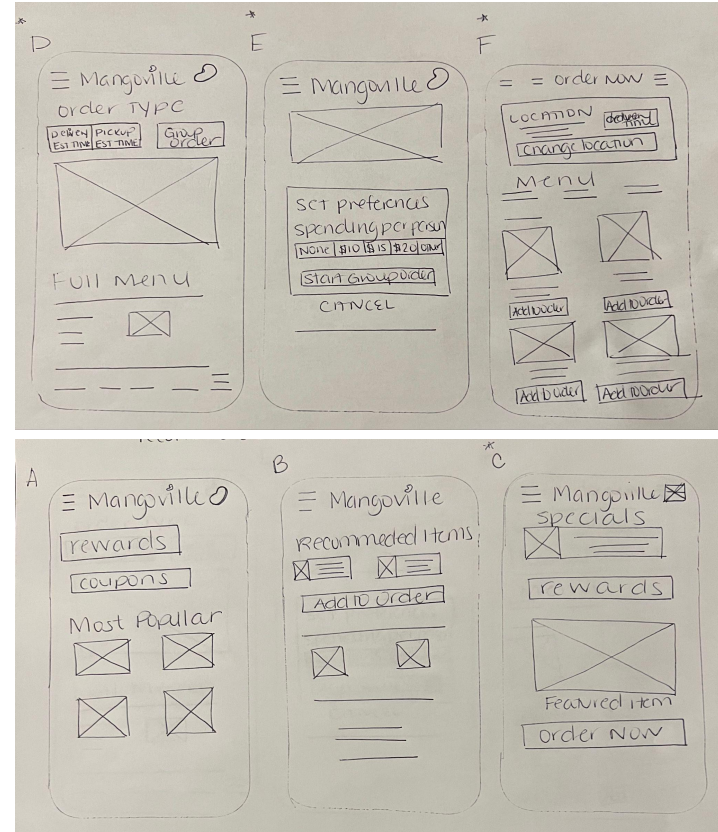 * * *
D
Mangoville
order TYPE
PICKUP
EST TIME EST TIME
Group
order
Full Menu
E
Mangoville
SET preferences
spending per person
None $10 $15 $20
Start Group order
CANCEL
F
order NOW
LOCATION
Change location
Menu
Add to order Add to order
Add to order Add to order
A
Mangoville
rewards
coupons
Most Popular
B
Mangoville
Recommeded Items
Add to order
*
C
Mangoville
specials
rewards
Featured item
order NOW